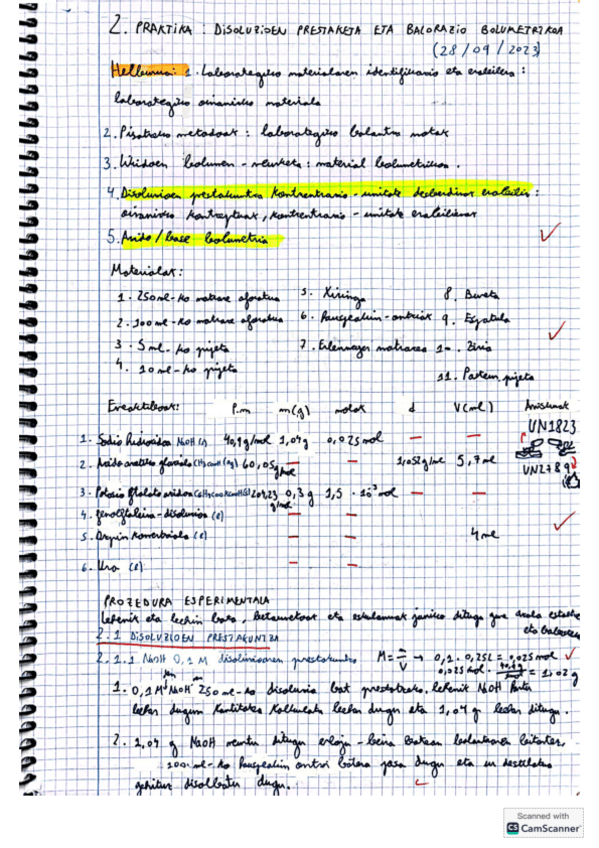 2. PRAKTIKA : DISOLUZIOEN PRESTAKETA ETA BALORAZIO BOLUMETRIKOA
(28/09/2023)
Helburua: 1. Laborategiko materialaren identifikazio eta erabilera :
laborategiko oinarrizko materiala
2. Pisatzeko metodoak : laborategiko balantza motak
3. Likidoen bolumen - neurketa : material bolumetrikoa .
4. Disoluzioen prestakuntza kontzentrazio - unitate desberdinak erabiliz :
oinarrizko kontzeptuak , kontzentrazio - unitate erabilienak
5. Azido / base bolumetria
Materialak :
1. 250 ml-ko matraze aforatua
5. Xiringa
8. Bureta
2. 100 ml-ko matraze aforatua
6. Hauspeatze-ontziak
9. Espatula
3. 5 ml-ko pipeta
7. Erlenmeyer matrazea
10. Ziria
4. 10 ml-ko pipeta
11. Pasteur pipeta
Erreaktiboak: P.m m(g) molak d V(ml) Arriskuak
UN1823
1. Sodio hidroxidoa NaOH (s) 40,4g/mol 1,04g 0,025mol — —
2. Azido azetiko glaziala (CH3COOH) 60,05g/mol — — 1,052g/ml 5,7ml
UN2789
3. Potasio ftalato azidoa 204,23 g/mol 0,3 g 1,5 · 10⁻³ mol — —
4. fenolftaleina - disoluzioa (l) — —
5. Ozpin komertziala (l) — — 4ml
6. Ura (l) — —
PROZEDURA ESPERIMENTALA
Lehenik eta behin bata, betaurrekoak eta eskularruak jantziko ditugu
eta
2.1 DISOLUZIOEN PRESTAKUNTZA
2.1.1 NaOH 0,1 M disoluzioaren prestakuntza M = n/V → 0,1 · 0,25L = 0,025 mol
0,025 mol · 40,4g/mol = 1,02 g
1. 0,1 M NaOH 250 ml-ko disoluzio bat prestatzeko, lehenik NaOH
behar dugun kantitatea kalkulatu behar dugu eta 1,04 g behar ditugu.
2. 1,04 g NaOH neurtu ditugu erloju - beira batean balantzaren bitartez,
100 ml-ko hauspeatze ontzi batera pasa dugu eta ur destilatua
gehituz disolbatu dugu.
Scanned with
CS CamScanner